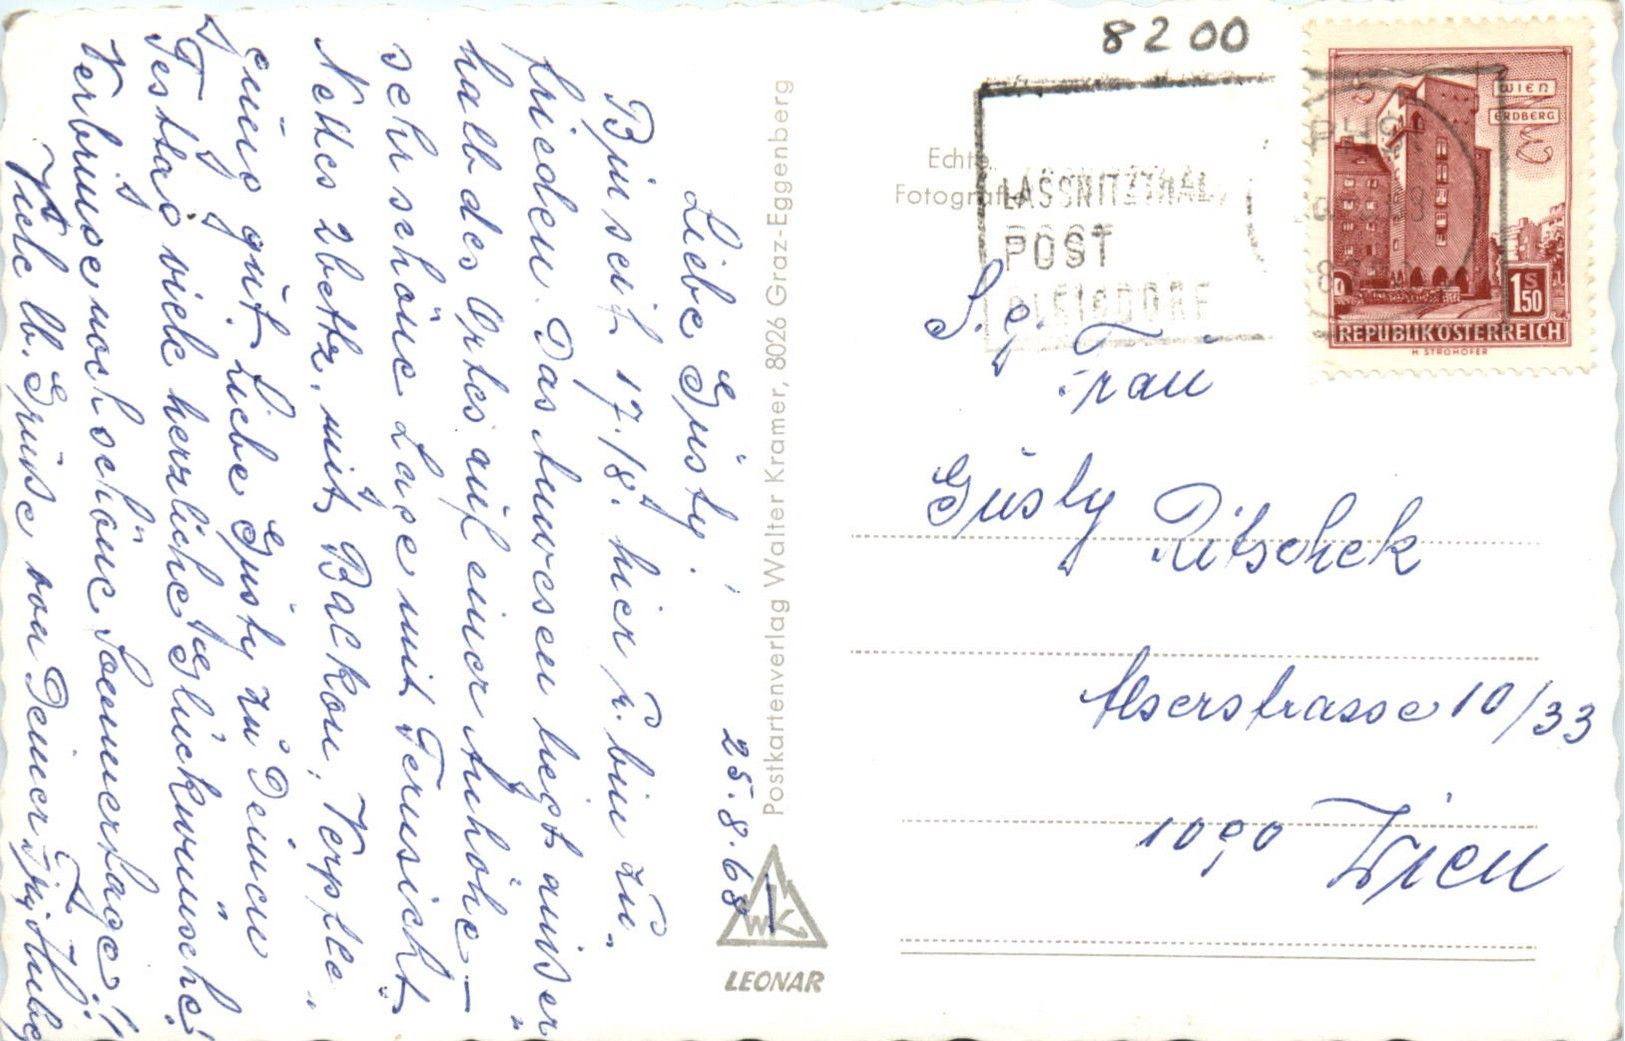 8200
Echte
Fotografie
LASSNITZTHAL
POST
GLEISDORF
WIEN
ERDBERG
1 S 50
REPUBLIK ÖSTERREICH
H. STROHOFER
S. g.
Frau
Gusty Ritschek
Alserstrasse 10/33
1090 Wien
Postkartenverlag Walter Kramer, 8026 Graz-Eggenberg
WK
LEONAR
25.8.68
Liebe Gusty!
Bin seit 17./8. hier u. bin zu„
frieden. Das Anwesen liegt außer„
halb des Ortes auf einer Anhöhe –
sehr schöne Lage mit Fernsicht.
Nettes 2bettz. mit Balkon, Verpfle„
gung gut. Liebe Gusty zu Deinem
Festtag viele herzliche Glückwünsche!
Verbringe noch schöne Sommertage!
Viele lb. Grüße von Deiner